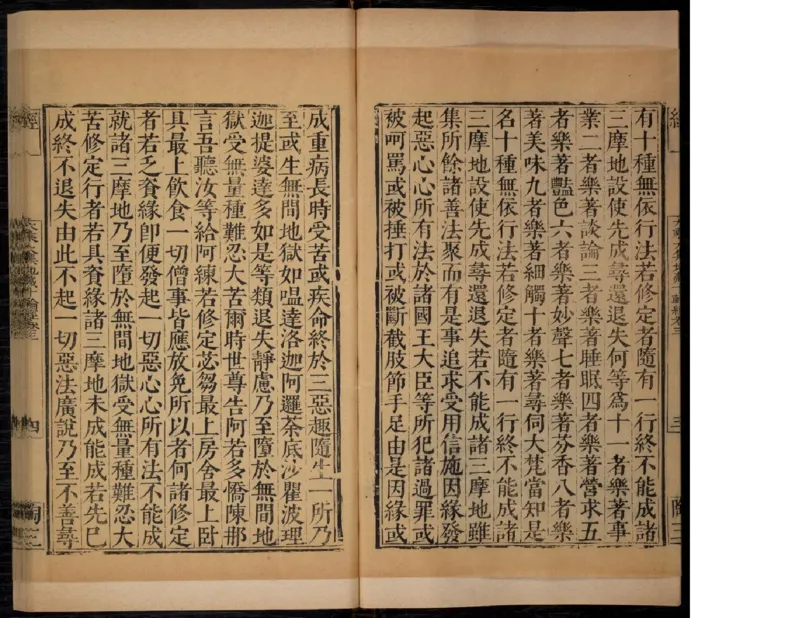 有十種無依行法若修定者隨有一行終不能成諸
三摩地設使先成尋還退失何等爲十一者樂著事
業二者樂著談論三者樂著睡眠四者樂著營求五
者樂著豔色六者樂著妙聲七者樂著芬香八者樂
著美味九者樂著細觸十者樂著尋伺大梵當知是
名十種無依行法若修定者隨有一行終不能成諸
三摩地設使先成尋還退失若不能成諸三摩地雖
集所餘諸善法聚而有是事追求受用信施因緣發
起惡心心所有法於諸國王大臣等所犯諸過罪或
被呵罵或被捶打或被斷截肢節手足由是因緣或
成重病長時受苦或疾命終於三惡趣隨生一所乃
至或生無間地獄如嗢達洛迦阿邏荼底沙瞿波理
迦提婆達多如是等類退失靜慮乃至墮於無間地
獄受無量種難忍大苦爾時世尊告阿若多憍陳那
言吾聽汝等給阿練若修定苾芻最上房舍最上臥
具最上飲食一切僧事皆應放免所以者何諸修定
者若乏資緣卽便發起一切惡心心所有法不能成
就諸三摩地乃至墮於無間地獄受無量種難忍大
苦修定行者若具資緣諸三摩地未成能成若先已
成終不退失由此不起一切惡法廣說乃至不善尋